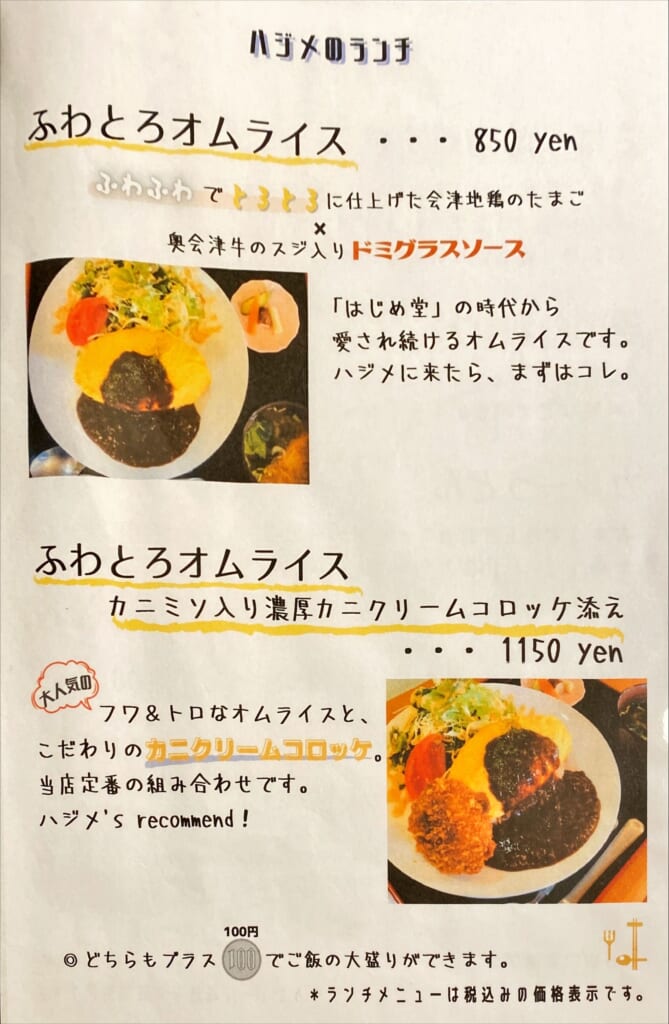 ハジメのランチ
ふわとろオムライス ・・・ 850 yen
ふわふわでとろとろに仕上げた会津地鶏のたまご
×
奥会津牛のスジ入りドミグラスソース
「はじめ堂」の時代から
愛され続けるオムライスです。
ハジメに来たら、まずはコレ。
ふわとろオムライス
カニミソ入り濃厚カニクリームコロッケ添え
・・・ 1150 yen
大人気の
フワ&トロなオムライスと、
こだわりのカニクリームコロッケ。
当店定番の組み合わせです。
ハジメ's recommend!
100円
◎どちらもプラス100でご飯の大盛りができます。
*ランチメニューは税込みの価格表示です。